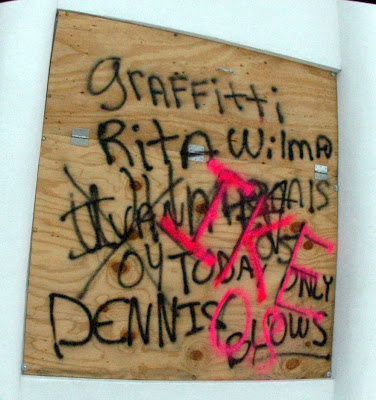 graffitti
Rita Wilma
IVAN
04 TODAY ONLY
DENNIS SHOWS
IKE
08